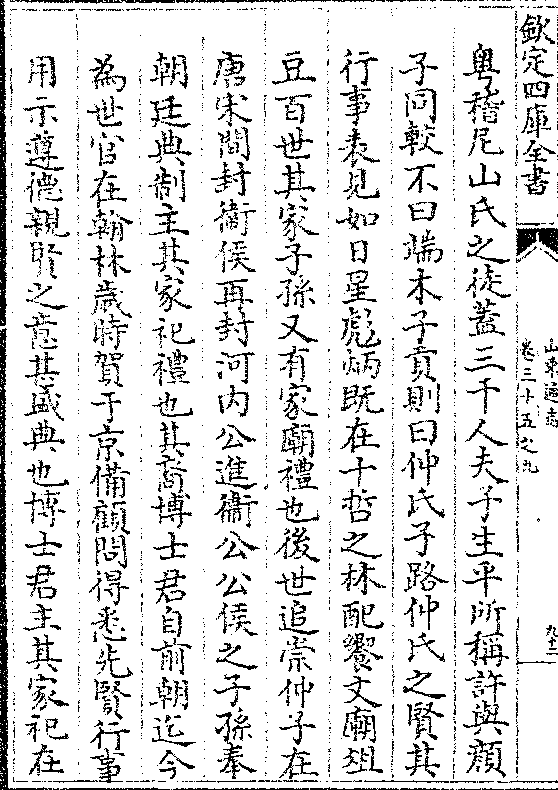 欽定四庫全書
山東通志
卷三十五之九
粵稽尼山氏之徒蓋三千人夫子生平所稱許與顔
子同較不曰端木子貢則曰仲氏子路仲氏之賢其
行事表見如日星彪炳既在十哲之林配饗文廟俎
豆百世其家子孫又有家廟禮也後世追崇仲子在
唐宋間封衞侯再封河内公進衞公公侯之子孫奉
朝廷典制主其家祀禮也其裔博士君自前朝迄今
為世官在翰林歲時賀于京備顧問得悉先賢行事
用示遵德親賢之意甚盛典也博士君主其家祀在